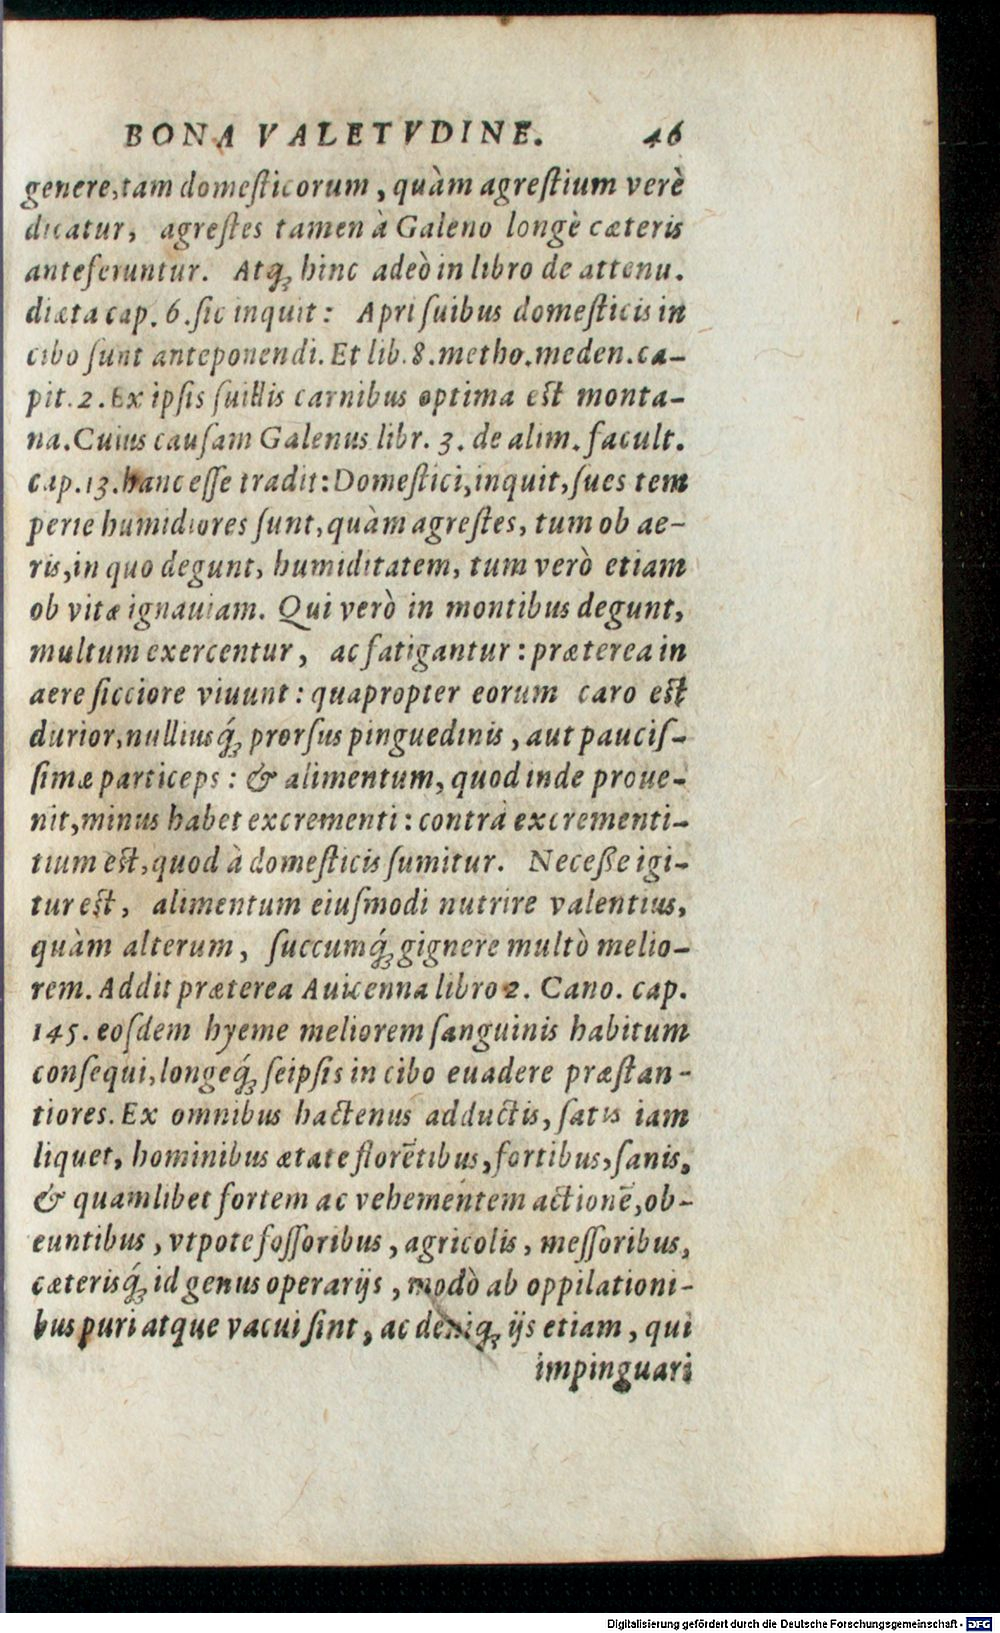 BONA VALETVDINE. 46
genere,tam domesticorum , quàm agrestium verè
dicatur, agrestes tamen à Galeno longè cæteris
anteferuntur. Atq́; hinc adeò in libro de attenu.
diæta cap. 6. sic inquit : Apri suibus domesticis in
cibo sunt anteponendi. Et lib. 8. metho.meden.ca-
pit. 2. Ex ipsis suillis carnibus optima est monta-
na. Cuius causam Galenus libr. 3. de alim. facult.
cap. 13. hanc esse tradit: Domestici, inquit, sues tem
perie humidiores sunt, quàm agrestes, tum ob ae-
ris, in quo degunt, humiditatem, tum verò etiam
ob vitæ ignauiam. Qui verò in montibus degunt,
multum exercentur, ac fatigantur : præterea in
aere sicciore viuunt : quapropter eorum caro est
durior, nulliusq́; prorsus pinguedinis , aut paucis-
simæ particeps : & alimentum, quod inde proue-
nit, minus habet excrementi : contrà excrementi-
tium est, quod à domesticis sumitur. Neceße igi-
tur est, alimentum eiusmodi nutrire valentius,
quàm alterum, succumq́; gignere multò melio-
rem. Addit præterea Auicenna libro 2. Cano. cap.
145. eosdem hyeme meliorem sanguinis habitum
consequi, longeq́; seipsis in cibo euadere præstan-
tiores. Ex omnibus hactenus adductis, satis iam
liquet, hominibus ætate florētibus, fortibus, sanis,
& quamlibet fortem ac vehementem actionē, ob-
euntibus , vtpote fossoribus , agricolis , messoribus,
cæterisq́; id genus operarijs , modò ab oppilationi-
bus puri atque vacui sint , ac deniq; ijs etiam , qui
impinguari
Digitalisierung gefördert durch die Deutsche Forschungsgemeinschaft - DFG